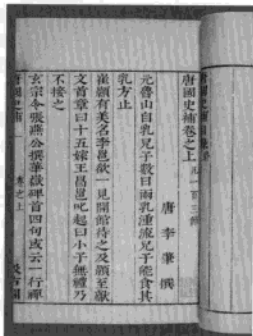 唐國史補卷之上
唐 李肇 撰
元魯山自乳兄子數日兩乳湩流兄子能食其
乳方止
崔顥有美名李邕欲一見開館待之及顥至獻
文首章曰十五嫁王昌邕叱起曰小子無禮乃
不接之
玄宗令張燕公撰華嶽碑首四句或云一行禪
唐國史補
卷之上